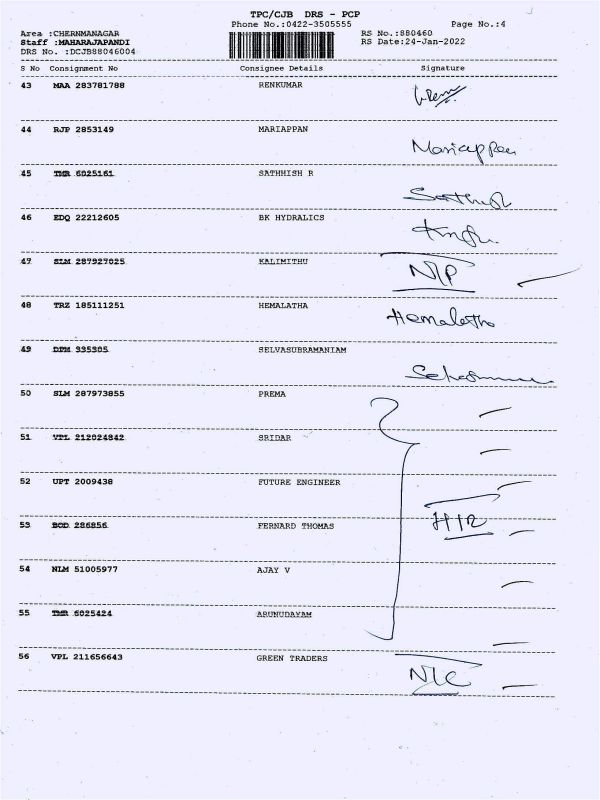 TPC/CJB DRS - PCP
Phone No.:0422-3505555 Page No.:4
Area :CHERNMANAGAR RS No.:880460
Staff :MAHARAJAPANDI RS Date:24-Jan-2022
DRS No. :DCJB88046004
S No Consignment No Consignee Details Signature
43 MAA 283781788 RENKUMAR
44 RJP 2853149 MARIAPPAN Mariappan
45 TMR 6025161 SATHHISH R
46 EDQ 22212605 BK HYDRALICS
47 SLM 287927025 KALIMITHU N/P
48 TRZ 185111251 HEMALATHA Hemalatha
49 DPM 935305 SELVASUBRAMANIAM
50 SLM 287973855 PREMA
51 VPL 212024842 SRIDAR
52 UPT 2009438 FUTURE ENGINEER
53 BOD 286856 FERNARD THOMAS
54 NLM 51005977 AJAY V
55 TMR 6025424 ARUNUDAYAM
56 VPL 211656643 GREEN TRADERS